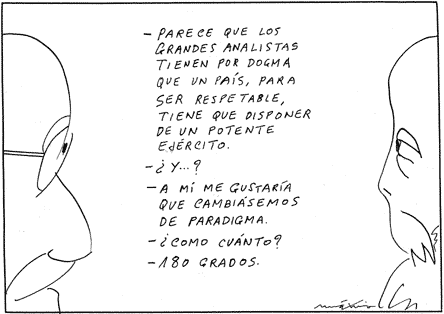 - PARECE QUE LOS
GRANDES ANALISTAS
TIENEN POR DOGMA
QUE UN PAÍS, PARA
SER RESPETABLE,
TIENE QUE DISPONER
DE UN POTENTE
EJÉRCITO.
- ¿Y...?
- A MÍ ME GUSTARÍA
QUE CAMBIÁSEMOS
DE PARADIGMA.
- ¿COMO CUÁNTO?
- 180 GRADOS.
máximo